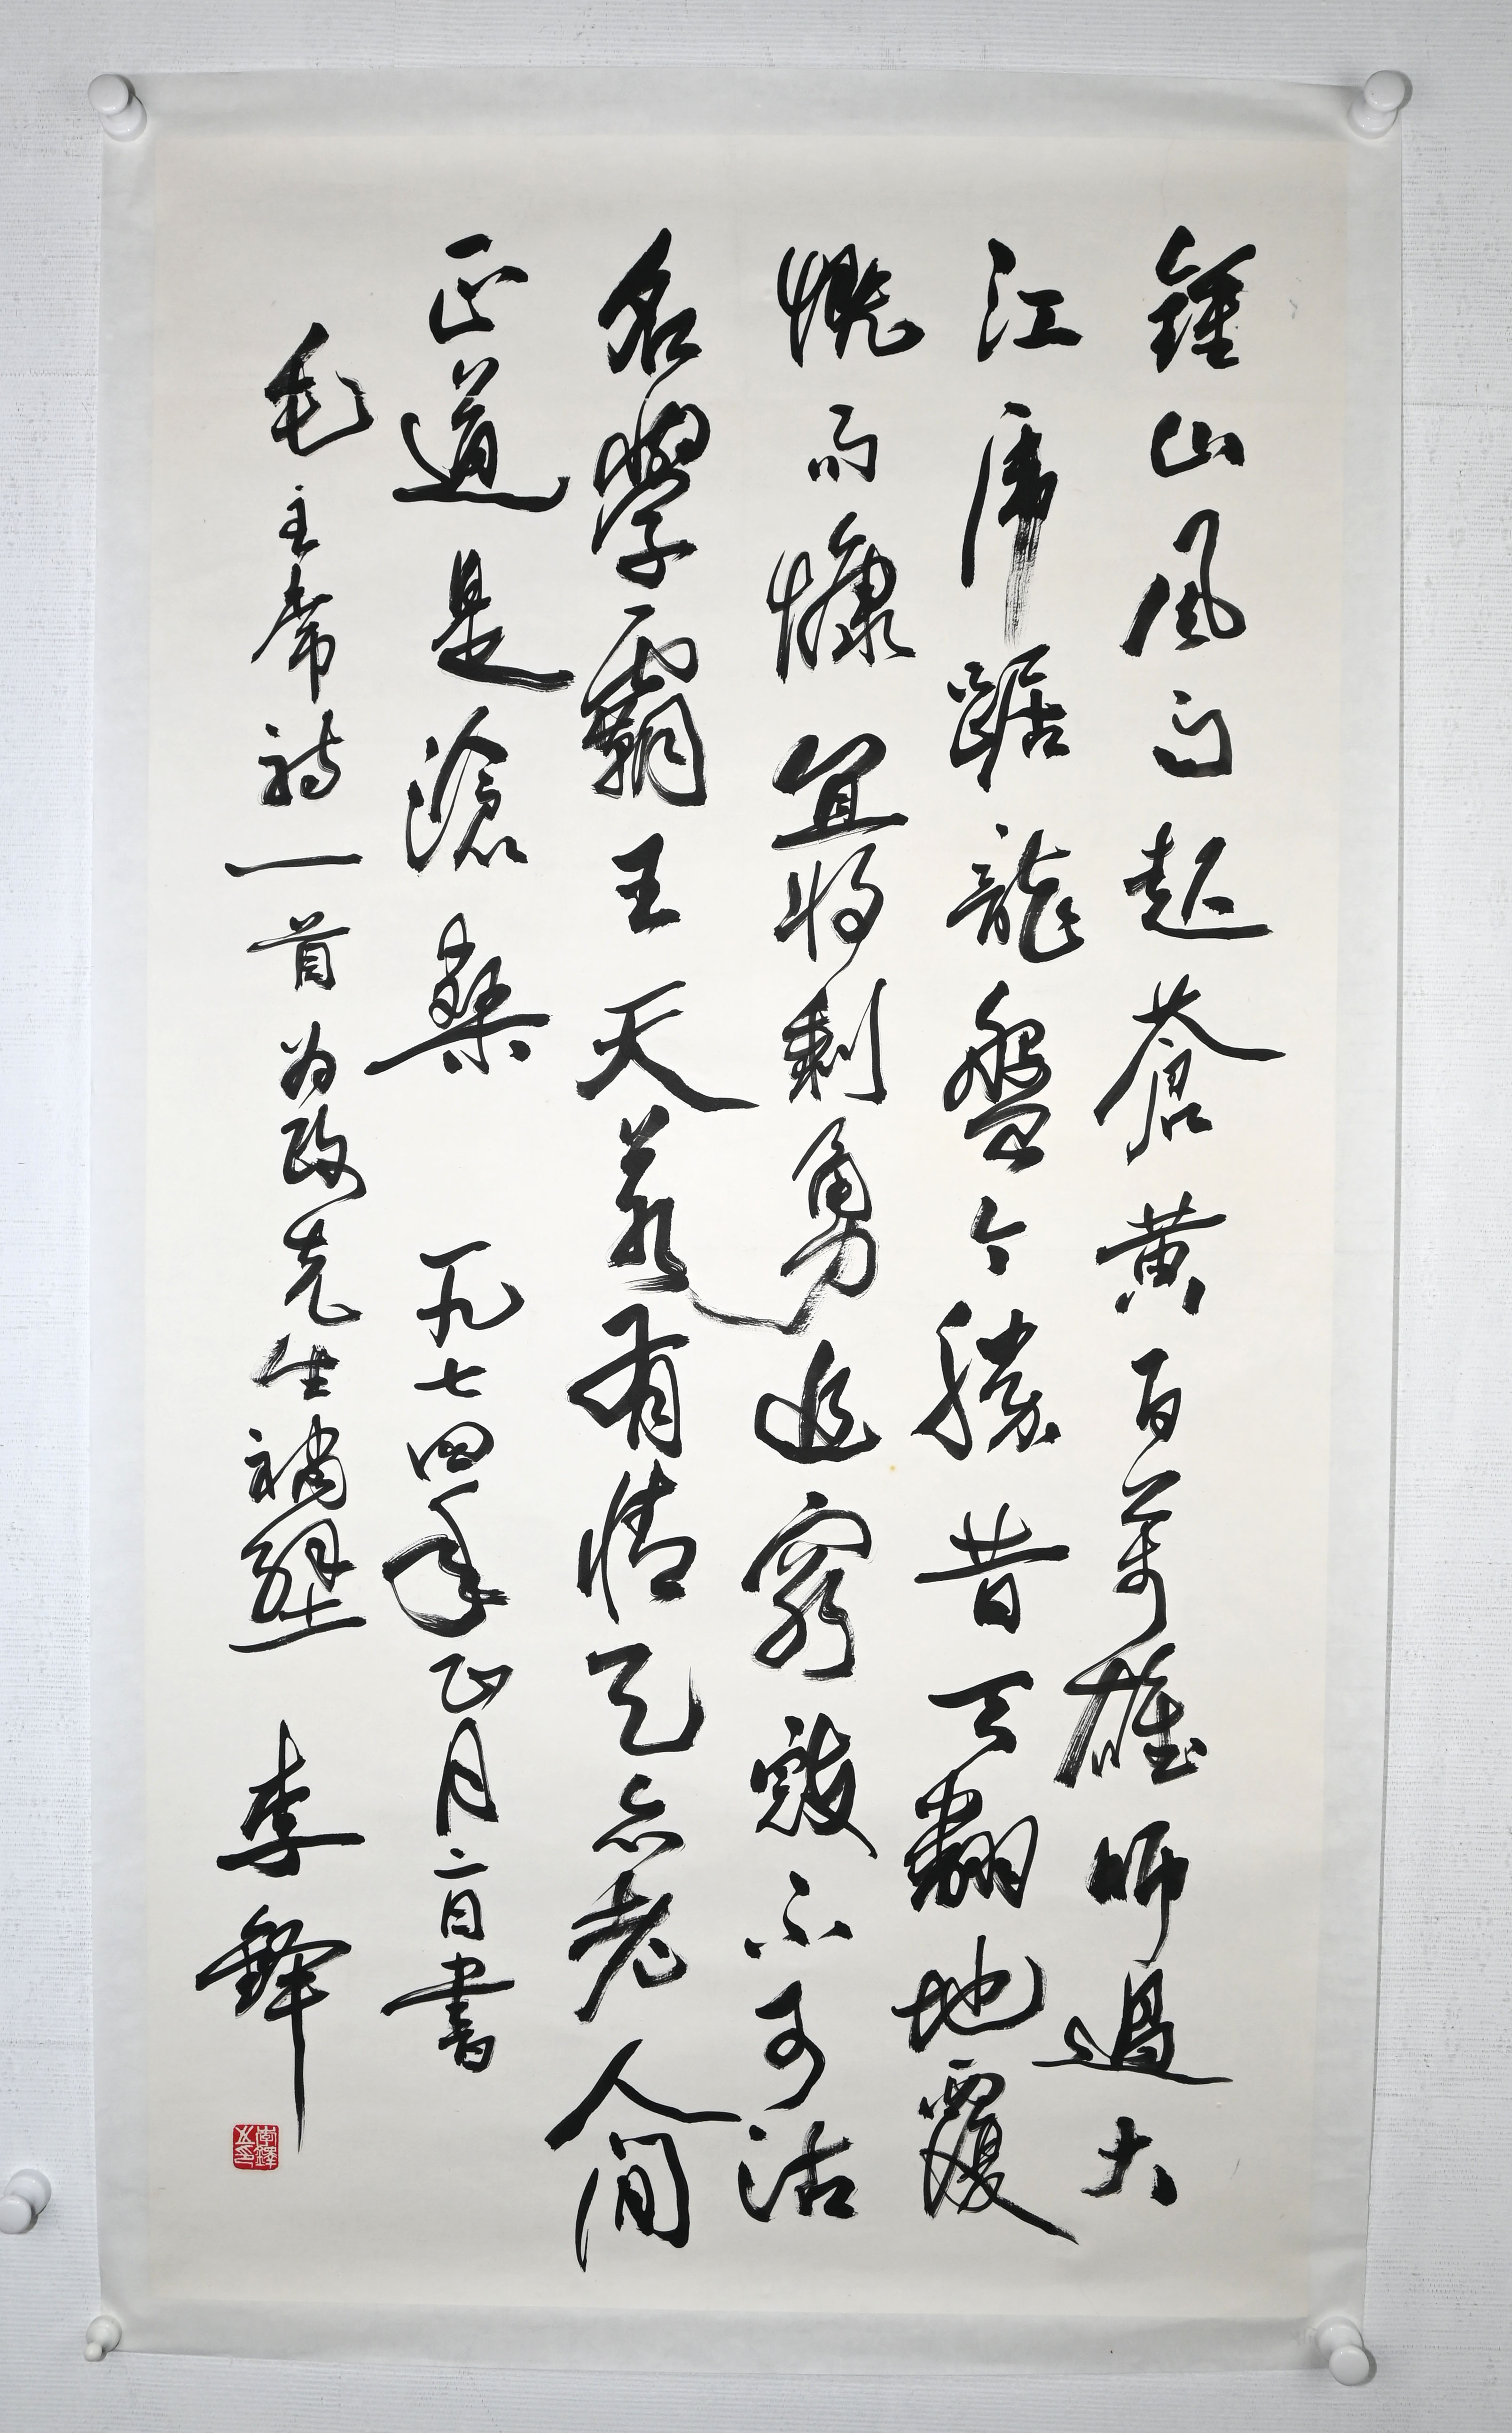 鍾山風雨起蒼黃百萬雄師過大
江虎踞龍盤今勝昔天翻地覆
慨而慷宜將剩勇追窮寇不可沽
名學霸王天若有情天亦老人間
正道是滄桑 一九七四年正月二日書
毛主席詩一首为政先生補壁 李鐸
李鐸